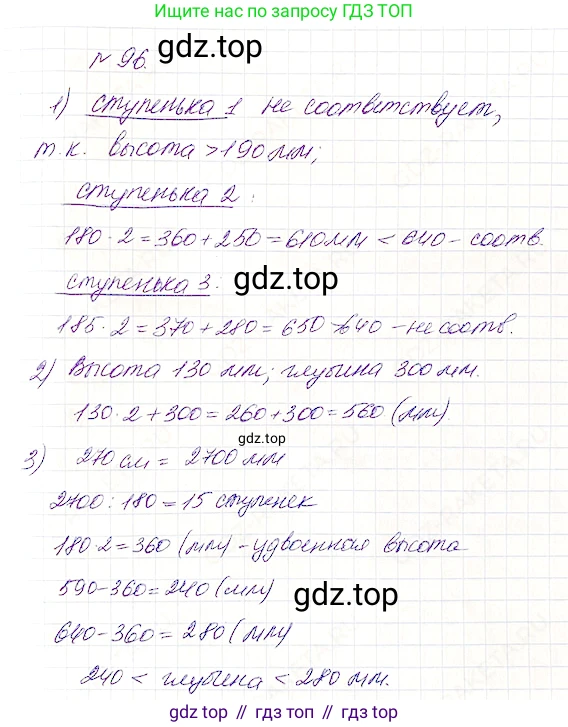 Ищите ответы по запросу ГДЗ ТОП
№ 96.
gdz.top
1) ступенька 1 не соответствует,
т.к. высота >190 мм;
ступенька 2:
180·2=360+250=610мм < 640 - соотв.
gdz.top
ступенька 3:
185·2=370+280=650>640 - не соотв.
2) Высота 130 мм; глубина 300 мм.
130·2+300=260+300=560 (мм)
gdz.top
3) 270 см = 2700 мм
2700:180=15 ступенек
180·2=360 (мм) - удвоенная высота
590-360=240 (мм)
gdz.top
640-360=280 (мм)
240 < глубина < 280 мм.
гдз топ // гдз топ // gdz.top